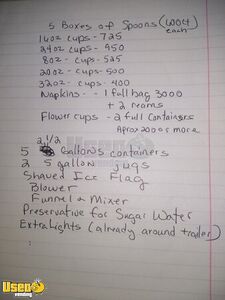 5 Boxes of Spoons (400ct
each)
14oz cups - 725
24oz cups - 950
8oz cups - 525
20oz cups - 500
32oz cups - 400
Napkins - - 1 full bag 3000
+ 2 reams
Flower cups - 2 full Containers
Aprox 2000 or more
2 1/2
5 Gallons containers
2 5 gallon jugs
Shaved Ice Flag
Blower
Funnel & Mixer
Preservative for Sugar Water
Extra Lights (already around trailer)
UsedVending